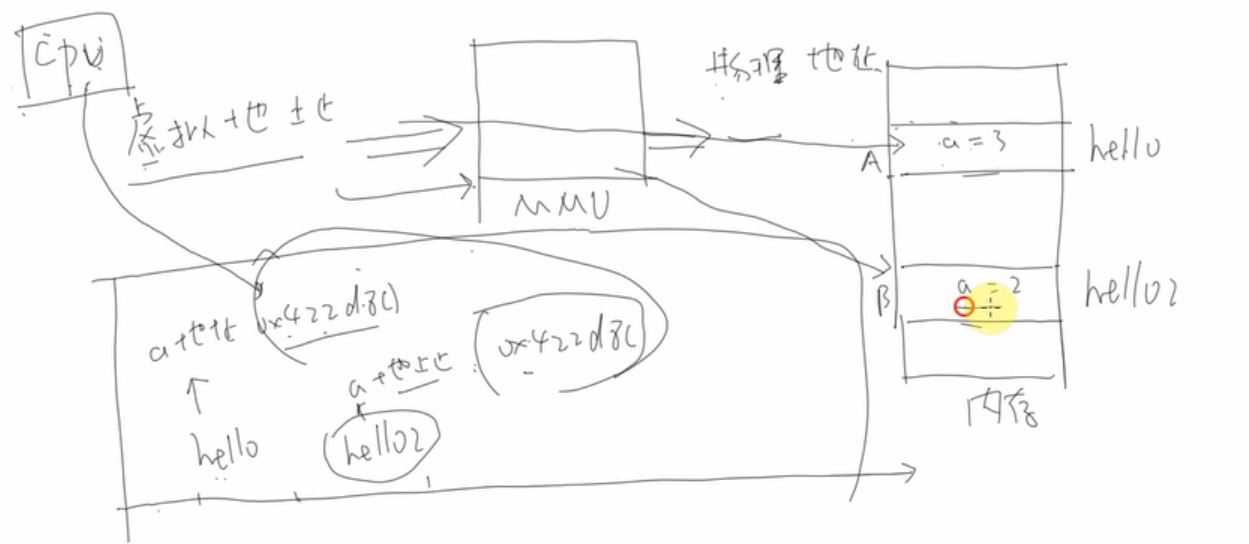 cpu
虚拟地址
物理地址
MMU
A
a = 3
hello
B
a = 2
hello2
内存
a地址
0x422d8c
a地址
0x422d8c
hello
hello2